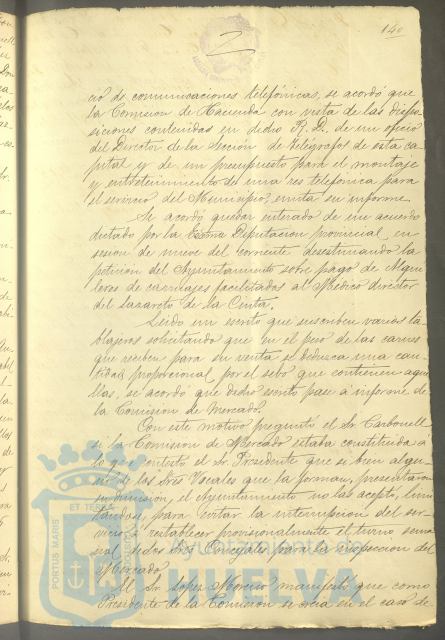 140
cio de comunicaciones telefónicas, se acordó que
la Comision de Hacienda con vista de las dispo-
siciones contenidas en dicho R. D. de un oficio
del Director de la Sección de Telégrafos de esta ca-
pital y de un presupuesto para el montaje
y entretenimiento de una red telefónica para
el servicio del Municipio, emita su informe.
Se acordó quedar enterado de un acuerdo
dictado por la Excma Diputacion provincial en
sesion de nueve del corriente desestimando la
peticion del Ayuntamiento sobre pago de alqui-
leres de carruajes facilitados al Médico director
del lazareto de la Cinta.
Leido un escrito que suscriben varios ta-
blajeros solicitando que en el peso de las carnes
que reciben para su venta se deduzca una can-
tidad proporcional por el sebo que contienen aque-
llas, se acordó que dicho escrito pase a informe de
la Comision de Mercado.
Con este motivo preguntó el Sr Carbonell
si la Comision de Mercado estaba constituida a
lo que contestó el Sr. Presidente que si bien algu-
nos de los Sres Vocales que la forman, presentaron
su dimision, el Ayuntamiento no las aceptó, limi-
tandose, para evitar la interrupcion del ser-
vicio, a restablecer provisionalmente el turno sema-
nal de los Sres Concejales para la inspeccion del
Mercado.
El Sr. Lopez Moreno manifestó que como
Presidente de la Comision se creia en el caso de
PORTUS MARIS ET TERRAE
Ayuntamiento de
HUELVA